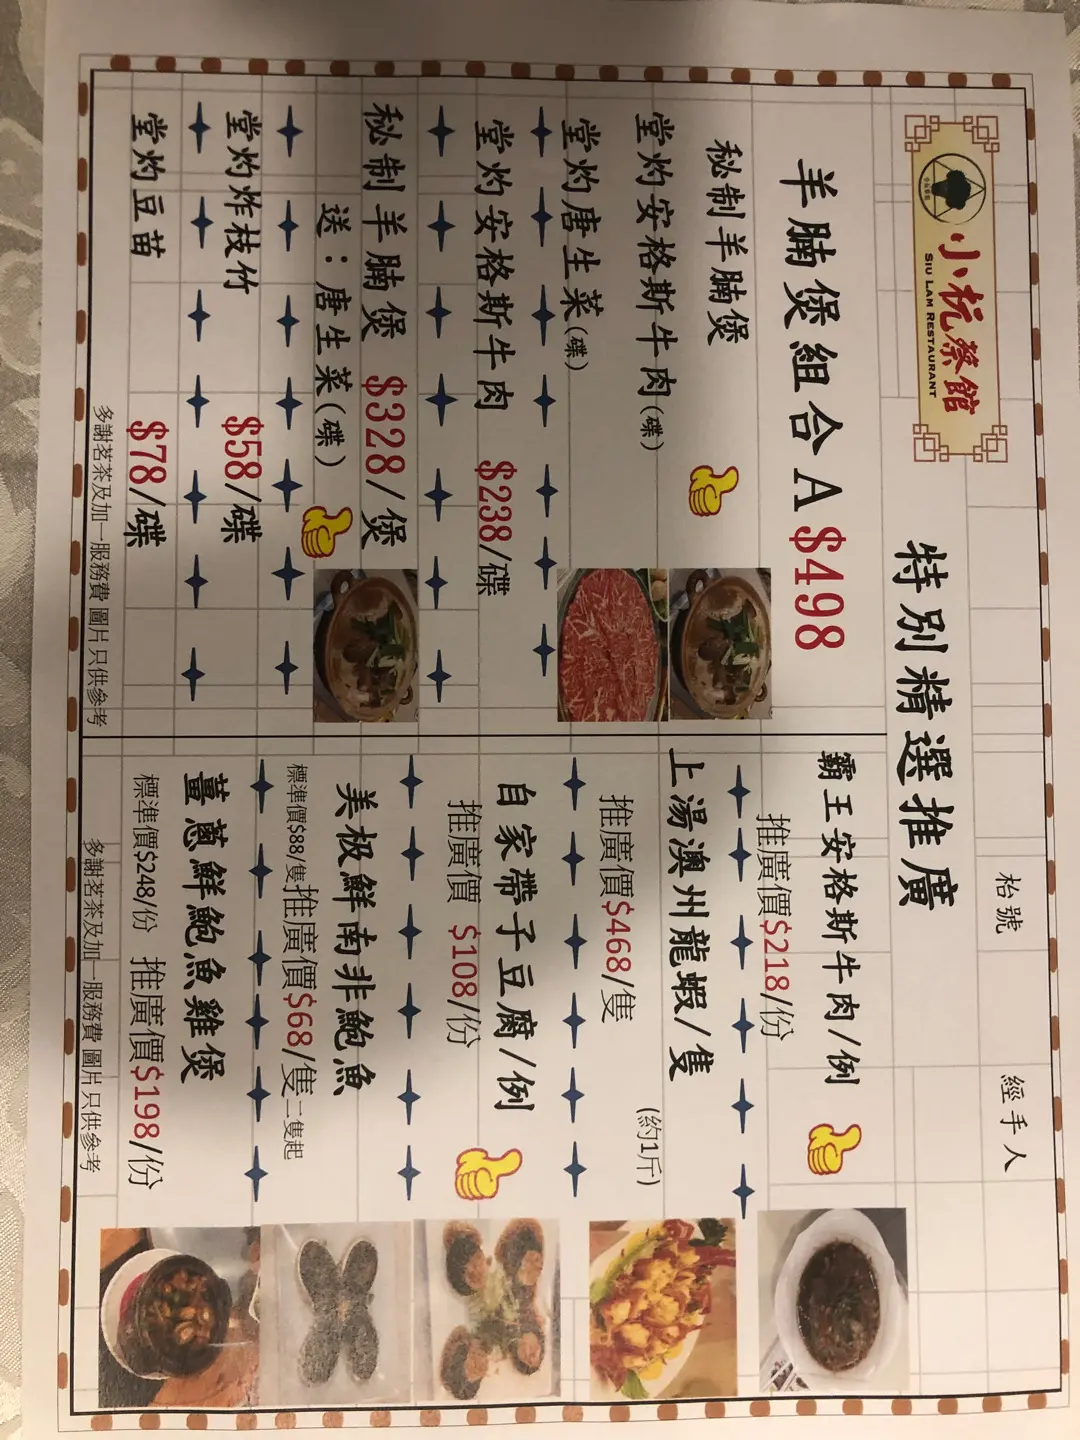 小杬祭館
SIU LAM RESTAURANT
特別精選推廣
枱號
經手人
羊腩煲組合A $498
秘制羊腩煲
堂灼安格斯牛肉(碟)
堂灼唐生菜(碟)
堂灼安格斯牛肉 $238/碟
秘制羊腩煲 $328/煲
送：唐生菜(碟)
堂灼炸枝竹 $58/碟
堂灼豆苗 $78/碟
多謝茗茶及加一服務費 圖片只供參考
霸王安格斯牛肉/例
推廣價$218/份
上湯澳州龍蝦/隻
(約1斤)
推廣價$468/隻
自家帶子豆腐/例
推廣價 $108/份
美极鮮南非鮑魚
標準價$88/隻推廣價$68/隻二隻起
薑蔥鮮鮑魚雞煲
標準價$248/份 推廣價$198/份
多謝茗茶及加一服務費 圖片只供參考